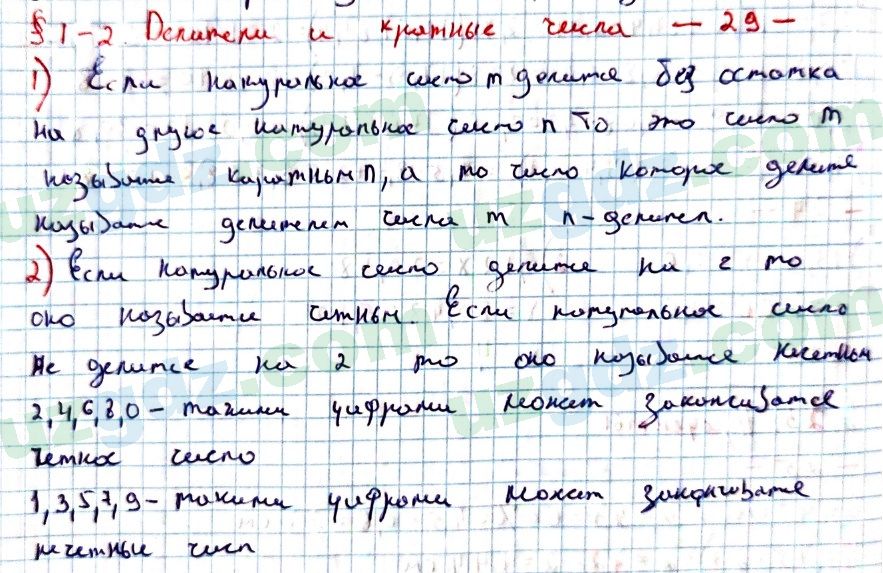 § 1-2 Делители и кратные числа - 29 -
1) Если натуральное число m делится без остатка
на другое натуральное число n то это число m
называется каратным n, а то число которое делится
называется делителем числа m n-делител.
2) Если натуральное число делится на 2 то
оно называется чётным. Если натуральное число
Не делится на 2 то оно называется нечетным
2,4,6,8,0 - такими цифрами может заканчиватся
четное число
1,3,5,7,9 - такими цифрами может заканчивается
нечетные числ
uzgdz.com